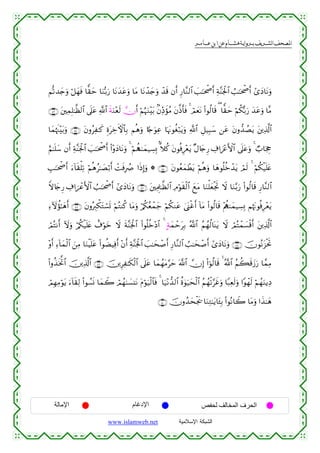 المصحف الشريف برواية هشام عن ابن عامر
وَنَادَىٰ أَصْحَٰبُ ٱلْجَنَّةِ أَصْحَٰبَ ٱلنَّارِ أَن قَدْ وَجَدْنَا مَا وَعَدَنَا رَبُّنَا حَقًّا فَهَلْ وَجَدتُّم
مَّا وَعَدَ رَبُّكُمْ حَقًّا قَالُوا۟ نَعَمْ فَأَذَّنَ مُؤَذِّنٌۢ بَيْنَهُمْ أَنَّ لَعْنَةَ ٱللَّهِ عَلَى ٱلظَّٰلِمِينَ
ٱلَّذِينَ يَصُدُّونَ عَن سَبِيلِ ٱللَّهِ وَيَبْغُونَهَا عِوَجًا وَهُم بِٱلْأَخِرَةِ كَٰفِرُونَ وَبَيْنَهُمَا
حِجَابٌ وَعَلَى ٱلْأَعْرَافِ رِجَالٌ يَعْرِفُونَ كُلًّۢا بِسِيمَىٰهُمْ وَنَادَوْا۟ أَصْحَٰبَ ٱلْجَنَّةِ أَن سَلَٰمٌ
عَلَيْكُمْ لَمْ يَدْخُلُوهَا وَهُمْ يَطْمَعُونَ وَإِذَا صُرِفَتْ أَبْصَٰرُهُمْ تِلْقَآءَ أَصْحَٰبِ
ٱلنَّارِ قَالُوا۟ رَبَّنَا لَا تَجْعَلْنَا مَعَ ٱلْقَوْمِ ٱلظَّٰلِمِينَ وَنَادَىٰ أَصْحَٰبُ ٱلْأَعْرَافِ رِجَالًا
يَعْرِفُونَهُم بِسِيمَىٰهُمْ قَالُوا۟ مَآ أَغْنَىٰ عَنكُمْ جَمْعُكُمْ وَمَا كُنتُمْ تَسْتَكْبِرُونَ أَهَٰٓؤُلَآءِ
ٱلَّذِينَ أَقْسَمْتُمْ لَا يَنَالُهُمُ ٱللَّهُ بِرَحْمَةٍ ٱدْخُلُوا۟ ٱلْجَنَّةَ لَا خَوْفٌ عَلَيْكُمْ وَلَآ أَنتُمْ
تَحْزَنُونَ وَنَادَىٰٓ أَصْحَٰبُ ٱلنَّارِ أَصْحَٰبَ ٱلْجَنَّةِ أَنْ أَفِيضُوا۟ عَلَيْنَا مِنَ ٱلْمَآءِ أَوْ
مِمَّا رَزَقَكُمُ ٱللَّهُ قَالُوٓا۟ إِنَّ ٱللَّهَ حَرَّمَهُمَا عَلَى ٱلْكَٰفِرِينَ ٱلَّذِينَ ٱتَّخَذُوا۟
دِينَهُمْ لَهْوًا وَلَعِبًا وَغَرَّتْهُمُ ٱلْحَيَوٰةُ ٱلدُّنْيَا فَٱلْيَوْمَ نَنسَىٰهُمْ كَمَا نَسُوا۟ لِقَآءَ يَوْمِهِمْ
هَٰذَا وَمَا كَانُوا۟ بِـَٔايَٰتِنَا يَجْحَدُونَ
الحرف المخالف لحفص الإدغام الإمالة
الشبكة الإسلامية www.islamweb.net